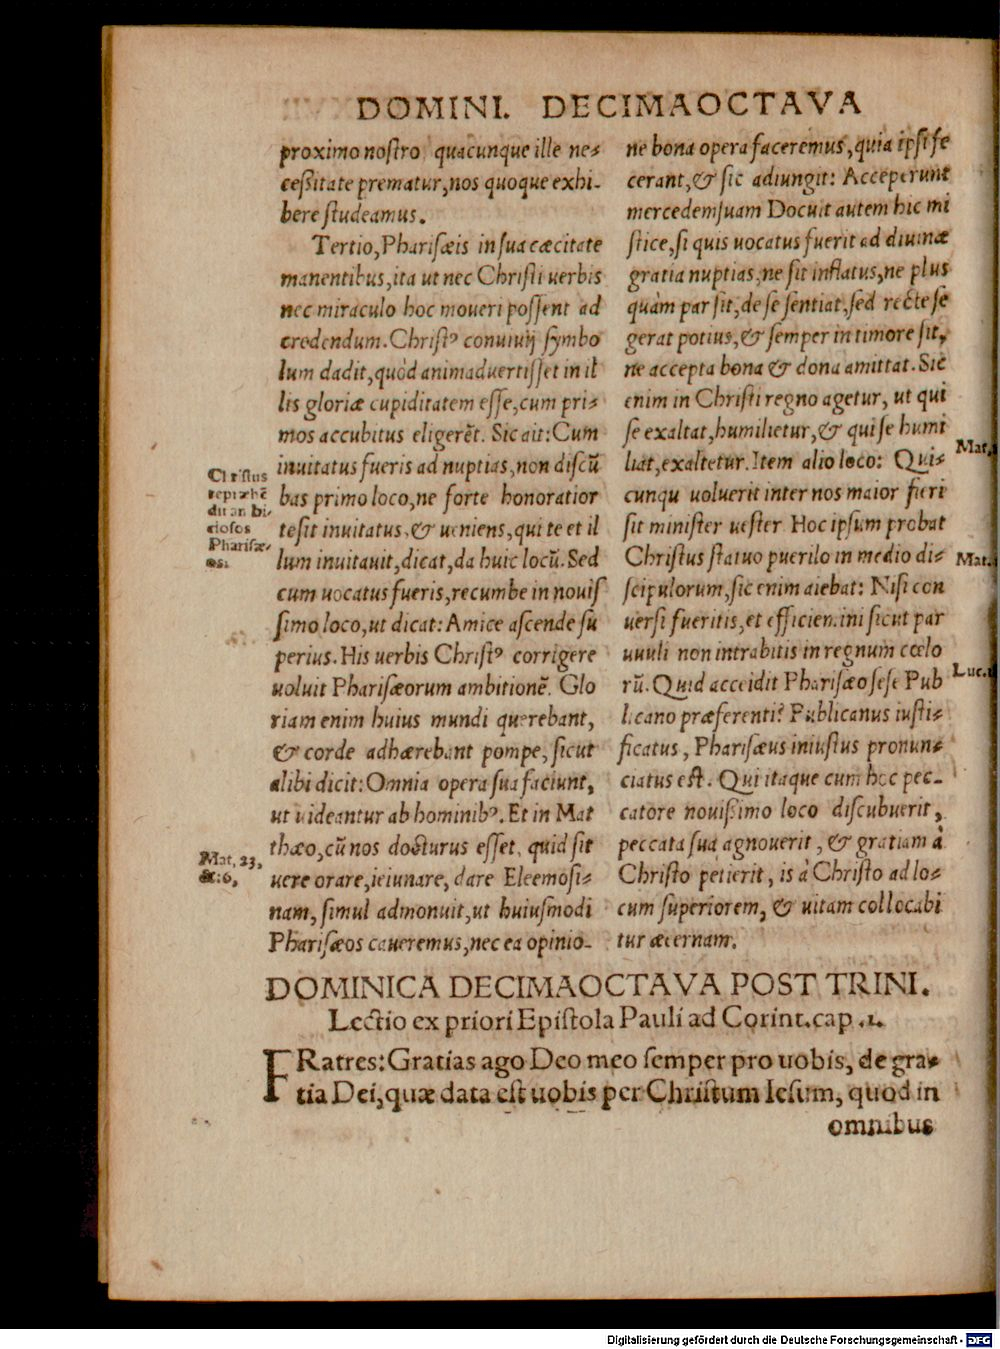 DOMINI. DECIMAOCTAVA
proximo nostro quacunque ille ne-
cessitate prematur, nos quoque exhi-
bere studeamus.
Tertio, Pharisæis in sua cæcitate
manentibus, ita ut nec Christi uerbis
nec miraculo hoc moueri possent ad
credendum. Christꝰ conuiuij symbo
lum dadit, quòd animaduertisset in il
lis gloriæ cupiditatem esse, cum pri-
mos accubitus eligerẽt. Sic ait: Cum
inuitatus fueris ad nuptias, non discũ
bas primo loco, ne forte honoratior
te sit inuitatus, & ueniens, qui te et il
lum inuitauit, dicat, da huic locũ. Sed
cum uocatus fueris, recumbe in nouis
simo loco, ut dicat: Amice ascende su
perius. His uerbis Christꝰ corrigere
uoluit Pharisæorum ambitionẽ. Glo
riam enim huius mundi querebant,
& corde adhærebant pompe, sicut
alibi dicit: Omnia opera sua faciunt,
ut uideantur ab hominibꝰ. Et in Mat
thæo, cũ nos docturus esset, quid sit
uere orare, ieiunare, dare Eleemosi-
nam, simul admonuit, ut huiusmodi
Pharisæos caueremus, nec ea opinio-
Christus
repræhẽ
dit am bi-
tiosos
Pharisæ-
os.
Mat, 23,
&:6,
ne bona opera faceremus, quia ipsi fe
cerant, & sic adiungit: Acceperunt
mercedem suam Docuit autem hic mi
stice, si quis uocatus fuerit ad diuinæ
gratia nuptias, ne sit inflatus, ne plus
quàm par sit, de se sentiat, sed recte se
gerat potius, & semper in timore sit,
ne accepta bona & dona amittat. Sic
enim in Christi regno agetur, ut qui
se exaltat, humilietur, & qui se humi
liat, exaltetur. Item alio loco: Qui-
cunqu uoluerit inter nos maior fieri
sit minister uester Hoc ipsum probat
Christus statuo puerilo in medio di-
scipulorum, sic enim aiebat: Nisi con
uersi fueritis, et efficiemini sicut par
uuuli non intrabitis in regnum cœlo
rũ. Quid accidit Pharisæo sese Pub
licano præferenti? Publicanus iusti-
ficatus, Pharisæus iniustus pronun-
ciatus est. Qui itaque cum hoc pec-
catore nouissimo loco discubuerit,
peccata sua agnouerit, & gratiam à
Christo petierit, is à Christo ad lo-
cum superiorem, & uitam collocabi
tur æternam.
Mat,
Mat.
Luc.
DOMINICA DECIMAOCTAVA POST TRINI.
Lectio ex priori Epistola Pauli ad Corint. cap .1.
FRatres: Gratias ago Deo meo semper pro uobis, de gra-
tia Dei, quæ data est uobis per Christum Iesum, quod in
omnibus
Digitalisierung gefördert durch die Deutsche Forschungsgemeinschaft - DFG